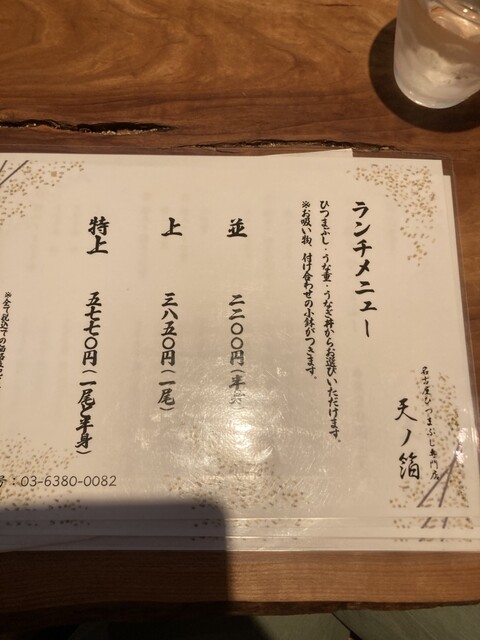 名古屋ひつまぶし専門店
天ノ箔
ランチメニュー
ひつまぶし・うな重・うなぎ丼からお選びいただけます。
※お吸い物、付け合わせの小鉢がつきます。
並 二二〇〇円(半
上 三八五〇円(一尾)
特上 五七七〇円(一尾と半身)
※全て税込での
号：03-6380-0082